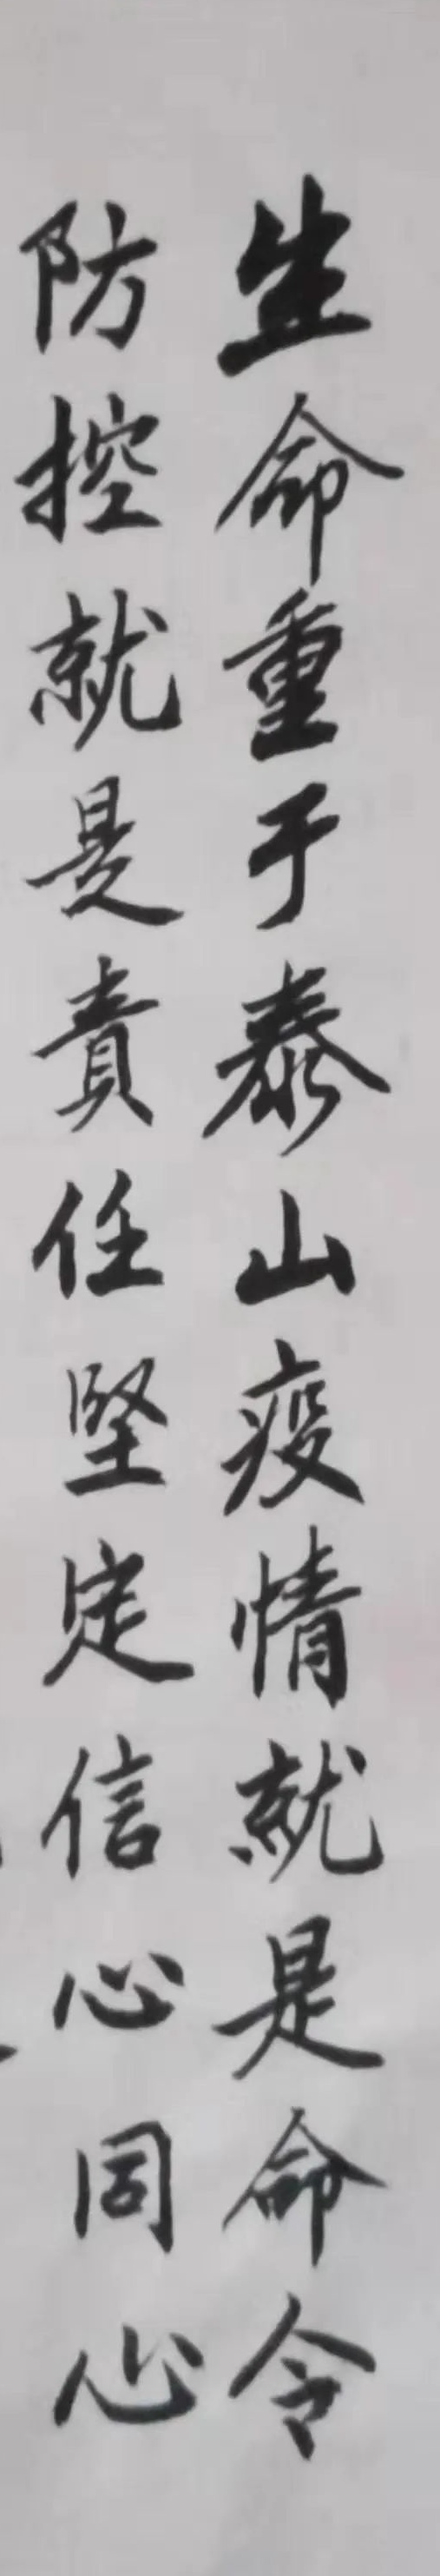 生命重于泰山疫情就是命令
防控就是責任堅定信心同心